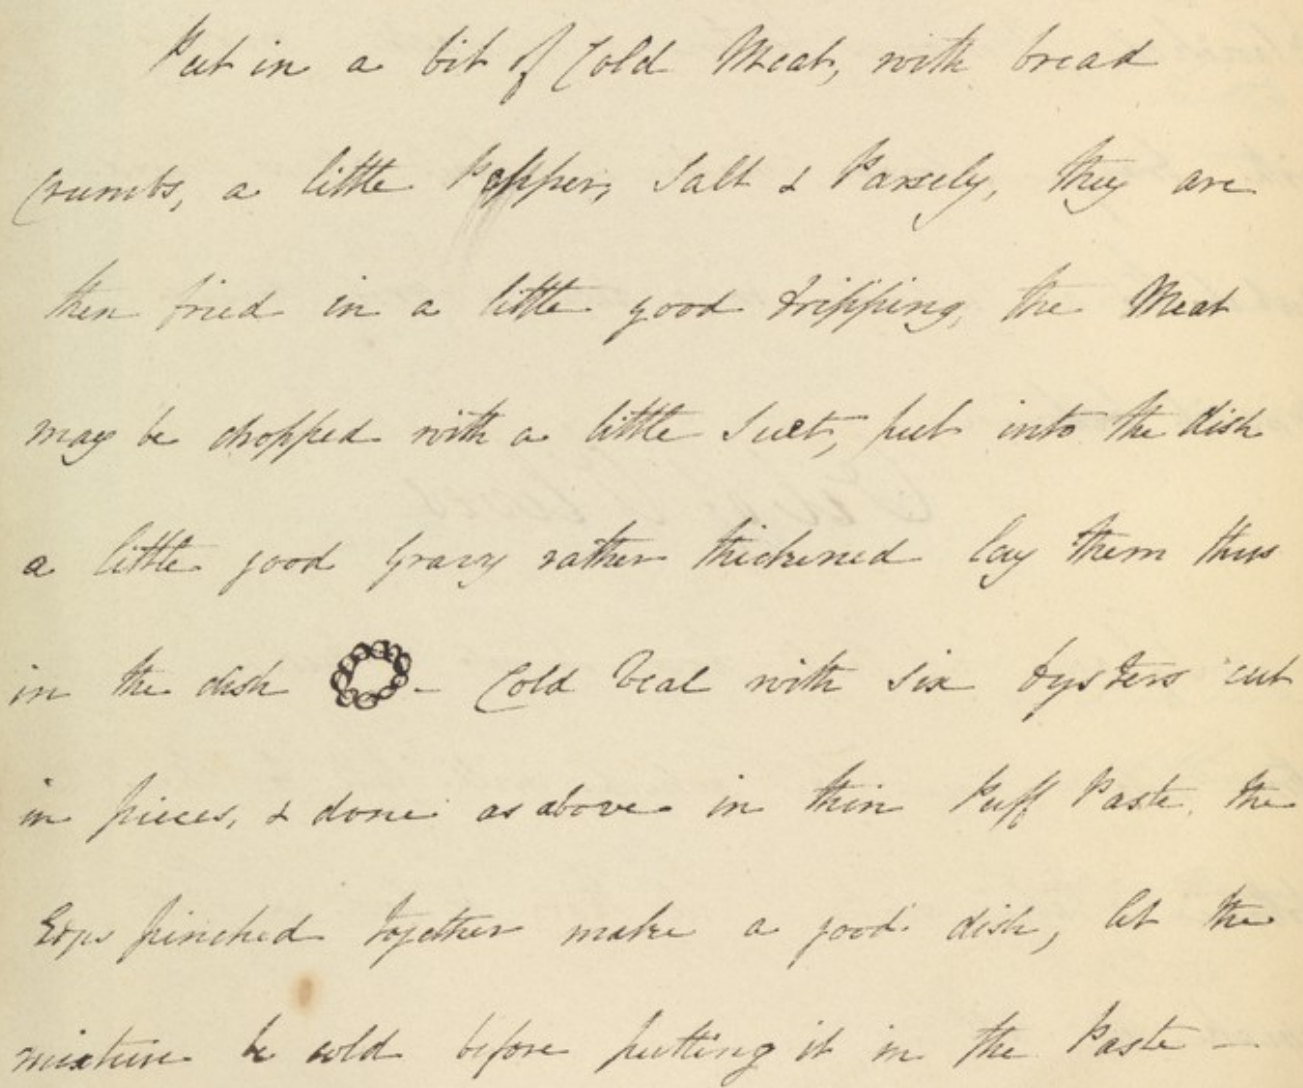 Put in a bit of Cold Meat, with bread
Crumbs, a little Pepper, Salt & Parsely, they are
then fried in a little good dripping, the Meat
may be chopped with a little Suet, put into the dish
a little good Gravy rather thickened lay them thus
in the dish - Cold Veal with six Oysters cut
in pieces, & done as above in thin Puff Paste, the
pinched together make a good dish, let the
mixture be cold before putting it in the Paste -